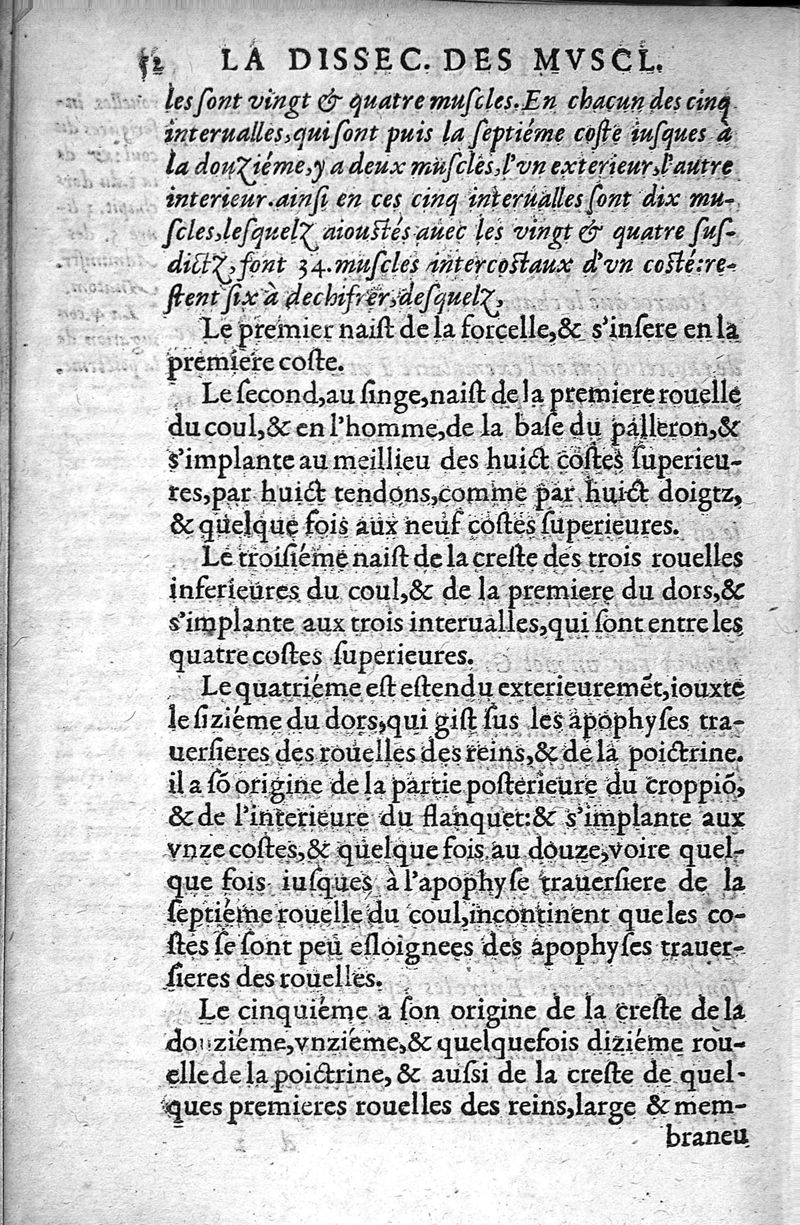 52 LA DISSEC. DES MVSCL.
les ſont vingt & quatre muſcles. En chacun des cinq
interualles, qui ſont puis la ſeptiéme coſte iuſques à
la douziéme, y a deux muſcles, l'vn exterieur, l'autre
interieur. ainſi en ces cinq interualles ſont dix mu-
ſcles, leſquelz aiouſtés auec les vingt & quatre ſuſ-
dictz, font 34. muſcles intercoſtaux d'vn coſté: re-
ſtent ſix à dechifrer, deſquelz,
Le premier naiſt de la forcelle, & s'inſere en la
premiere coſte.
Le ſecond, au ſinge, naiſt de la premiere rouelle
du coul, & en l'homme, de la baſe du palleron, &
s'implante au meillieu des huict coſtes ſuperieu-
res, par huict tendons, comme par huict doigtz,
& quelque fois aux neuf coſtes ſuperieures.
Le troiſiéme naiſt de la creſte des trois rouelles
inferieures du coul, & de la premiere du dors, &
s'implante aux trois interualles, qui ſont entre les
quatre coſtes ſuperieures.
Le quatriéme eſt eſtendu exterieuremẽt, iouxte
le ſiziéme du dors, qui giſt ſus les apophyſes tra-
uerſieres des rouelles des reins, & de la poictrine.
il a ſõ origine de la partie poſterieure du croppiõ,
& de l'interieure du flanquet: & s'implante aux
vnze coſtes, & quelque fois au douze, voire quel-
que fois iuſques à l'apophyſe trauerſiere de la
ſeptiéme rouelle du coul, incontinent que les co-
ſtes ſe ſont peu eſloignees des apophyſes trauer-
ſieres des rouelles.
Le cinquiéme a ſon origine de la creſte de la
douziéme, vnziéme, & quelquefois diziéme rou-
elle de la poictrine, & auſsi de la creſte de quel-
ques premieres rouelles des reins, large & mem-
braneu